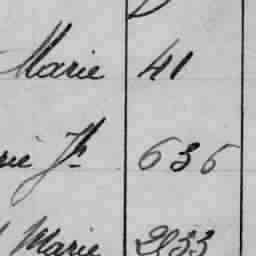 Marie 41
rie Jh 636
Marie 2933